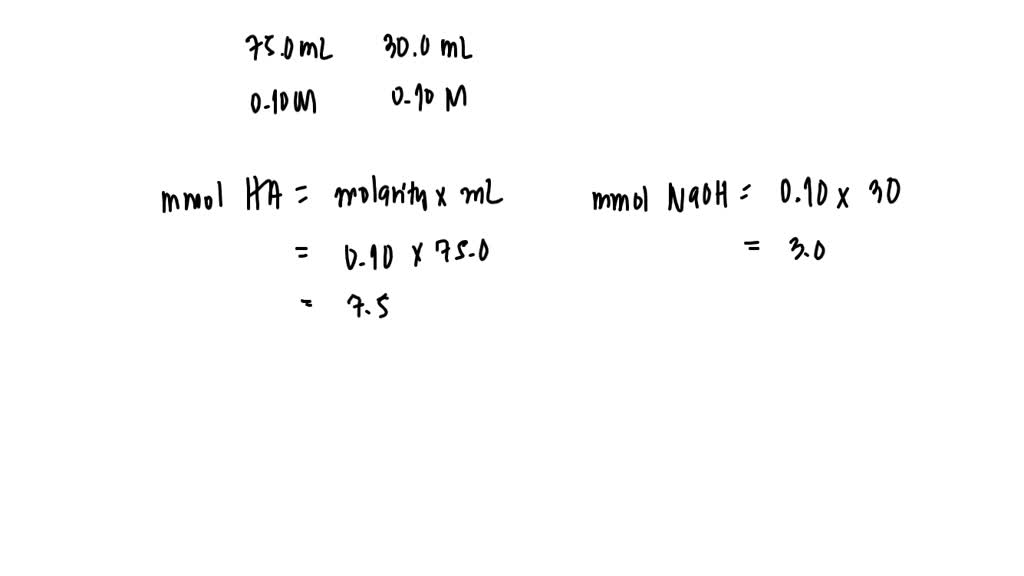 75.0 mL 30.0 mL
0.10 M 0.10 M
mmol HA = molarity x mL
= 0.10 x 75.0
= 7.5
mmol NaOH = 0.10 x 30
= 3.0